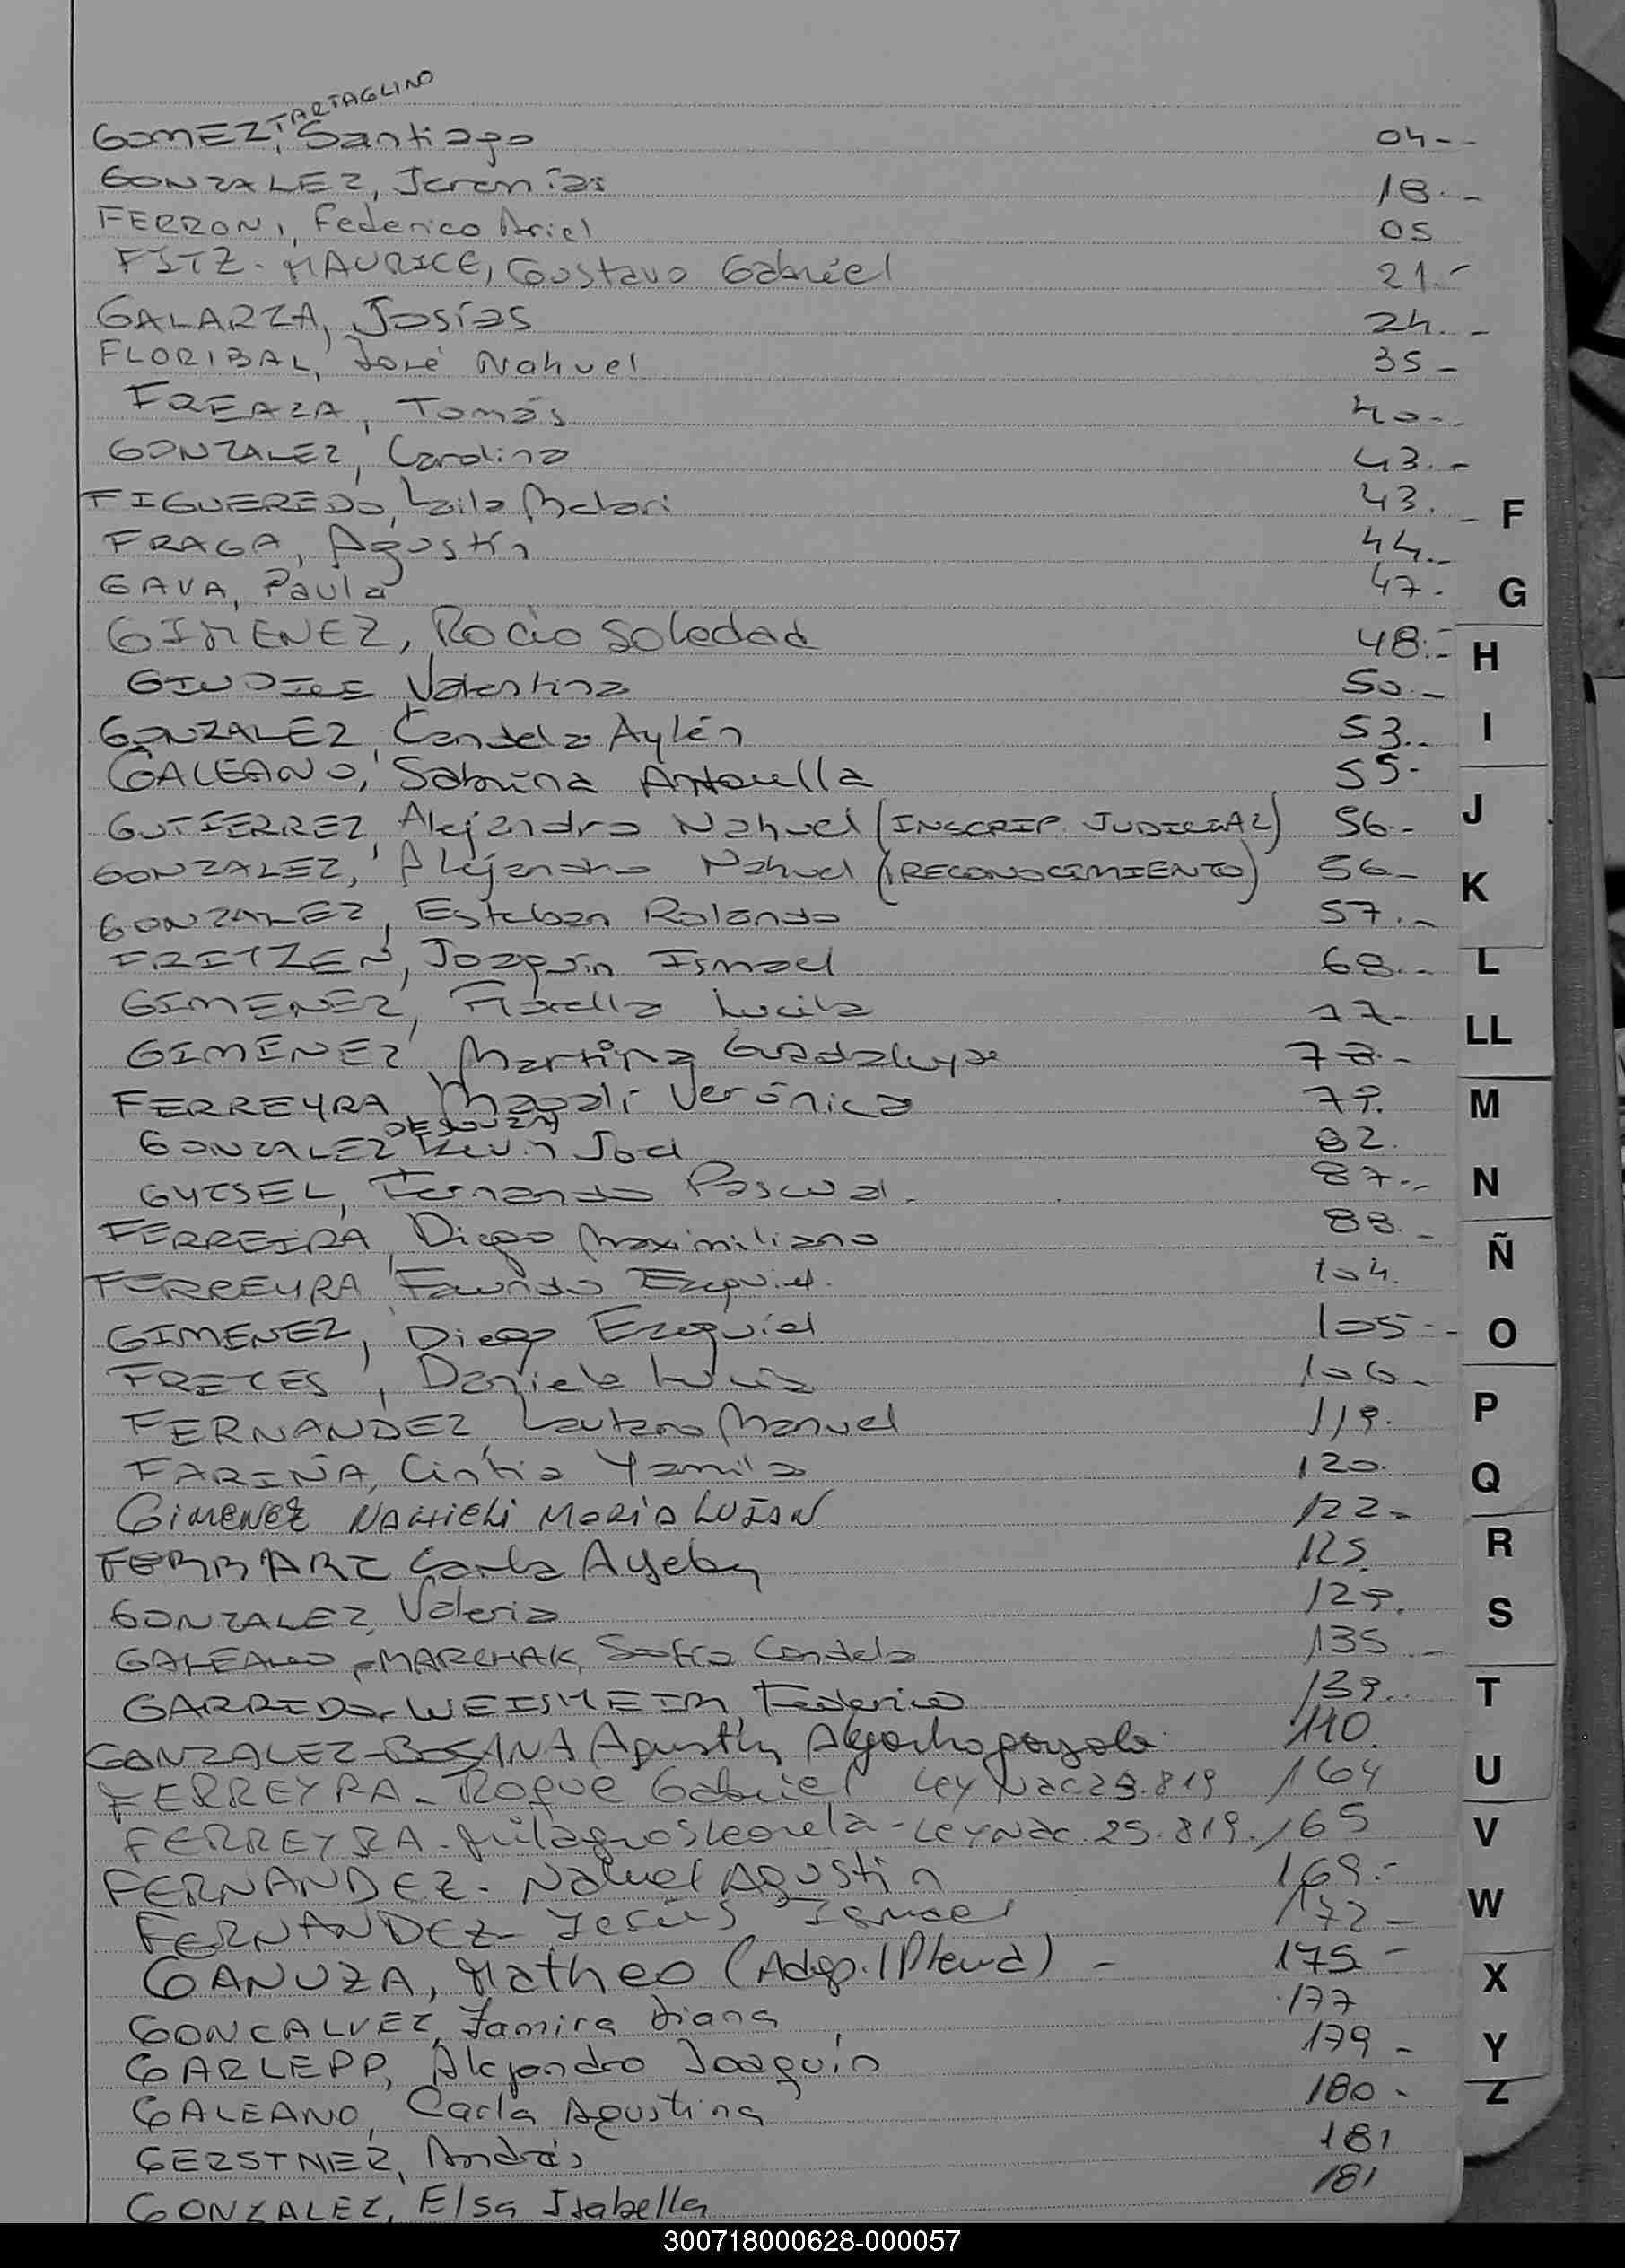 TARTAGLINO
GOMEZ, Santiago 04--
GONZALEZ, Jeremías 18.-
FERRONI, Federico Ariel 05
FITZ-MAURICE, Gustavo Gabriel 21.-
GALARZA, Josías 24.-
FLORIBAL, José Nahuel 35-
FREAZA, Tomás 40--
GONZALEZ, Carolina 43.-
FIGUEREDO, Laila 43.- F
FRAGA, Agustín 44.-
GAVA, Paula 47. G
GIMENEZ, Rocío Soledad 48.- H
GIUDICE Valentina 50.-
GONZALEZ, Candela Aylén 53.. I
GALEANO, Sabrina Antonella 55-
GUTIERREZ, Alejandro Nahuel (INSCRIP. JUDICIAL) 56.- J
GONZALEZ, Alejandro Nahuel (RECONOCIMIENTO) 56- K
GONZALEZ, Esteban Rolando 57.-
FRITZEN, Joaquín Ismael 68.- L
GIMENEZ, Fiorella Lucila 77- LL
GIMENEZ, Martina Guadalupe 78.-
FERREYRA, Magalí Verónica 79. M
DE SOUZA
GONZALEZ Kevin Joel 82.
GYTSEL, Fernando Pascual. 87.- N
FERREIRA, Diego Maximiliano 88.-
Ñ
FERREYRA, Facundo Ezequiel. 104.
GIMENEZ, Diego Ezequiel 105-- O
FRETES, Daniela Lucía 106-
FERNANDEZ, Lautaro Manuel 119. P
FARIÑA, Cintia Yamila 120. Q
GIMENEZ NAHIELI MARIA LUJAN 122-
FERRARI Carla Ayelen 125. R
GONZALEZ, Valeria 129. S
GALEANO-MARCHAK, Sofía Candela 135-
GARRIDO-WEISHEIM, Federico 139.. T
GONZALEZ Agustín 110.
FERREYRA- Roque Gabriel Ley Nac 25.819 164 U
FERREYRA- Milagros - Ley Nac. 25.819. 165 V
FERNANDEZ- Nahuel Agustin 169.-
FERNANDEZ- Jesús Ismael 172- W
GANUZA, Matheo (Adop. Plena) - 175-
X
GONCALVEZ, Tamira Diana 177
GARLEPP, Alejandro Joaquín 179- Y
GALEANO, Carla Agustina 180- Z
GERSTNER, Andrés 181
GONZALEZ, Elsa Isabella 181
300718000628-000057